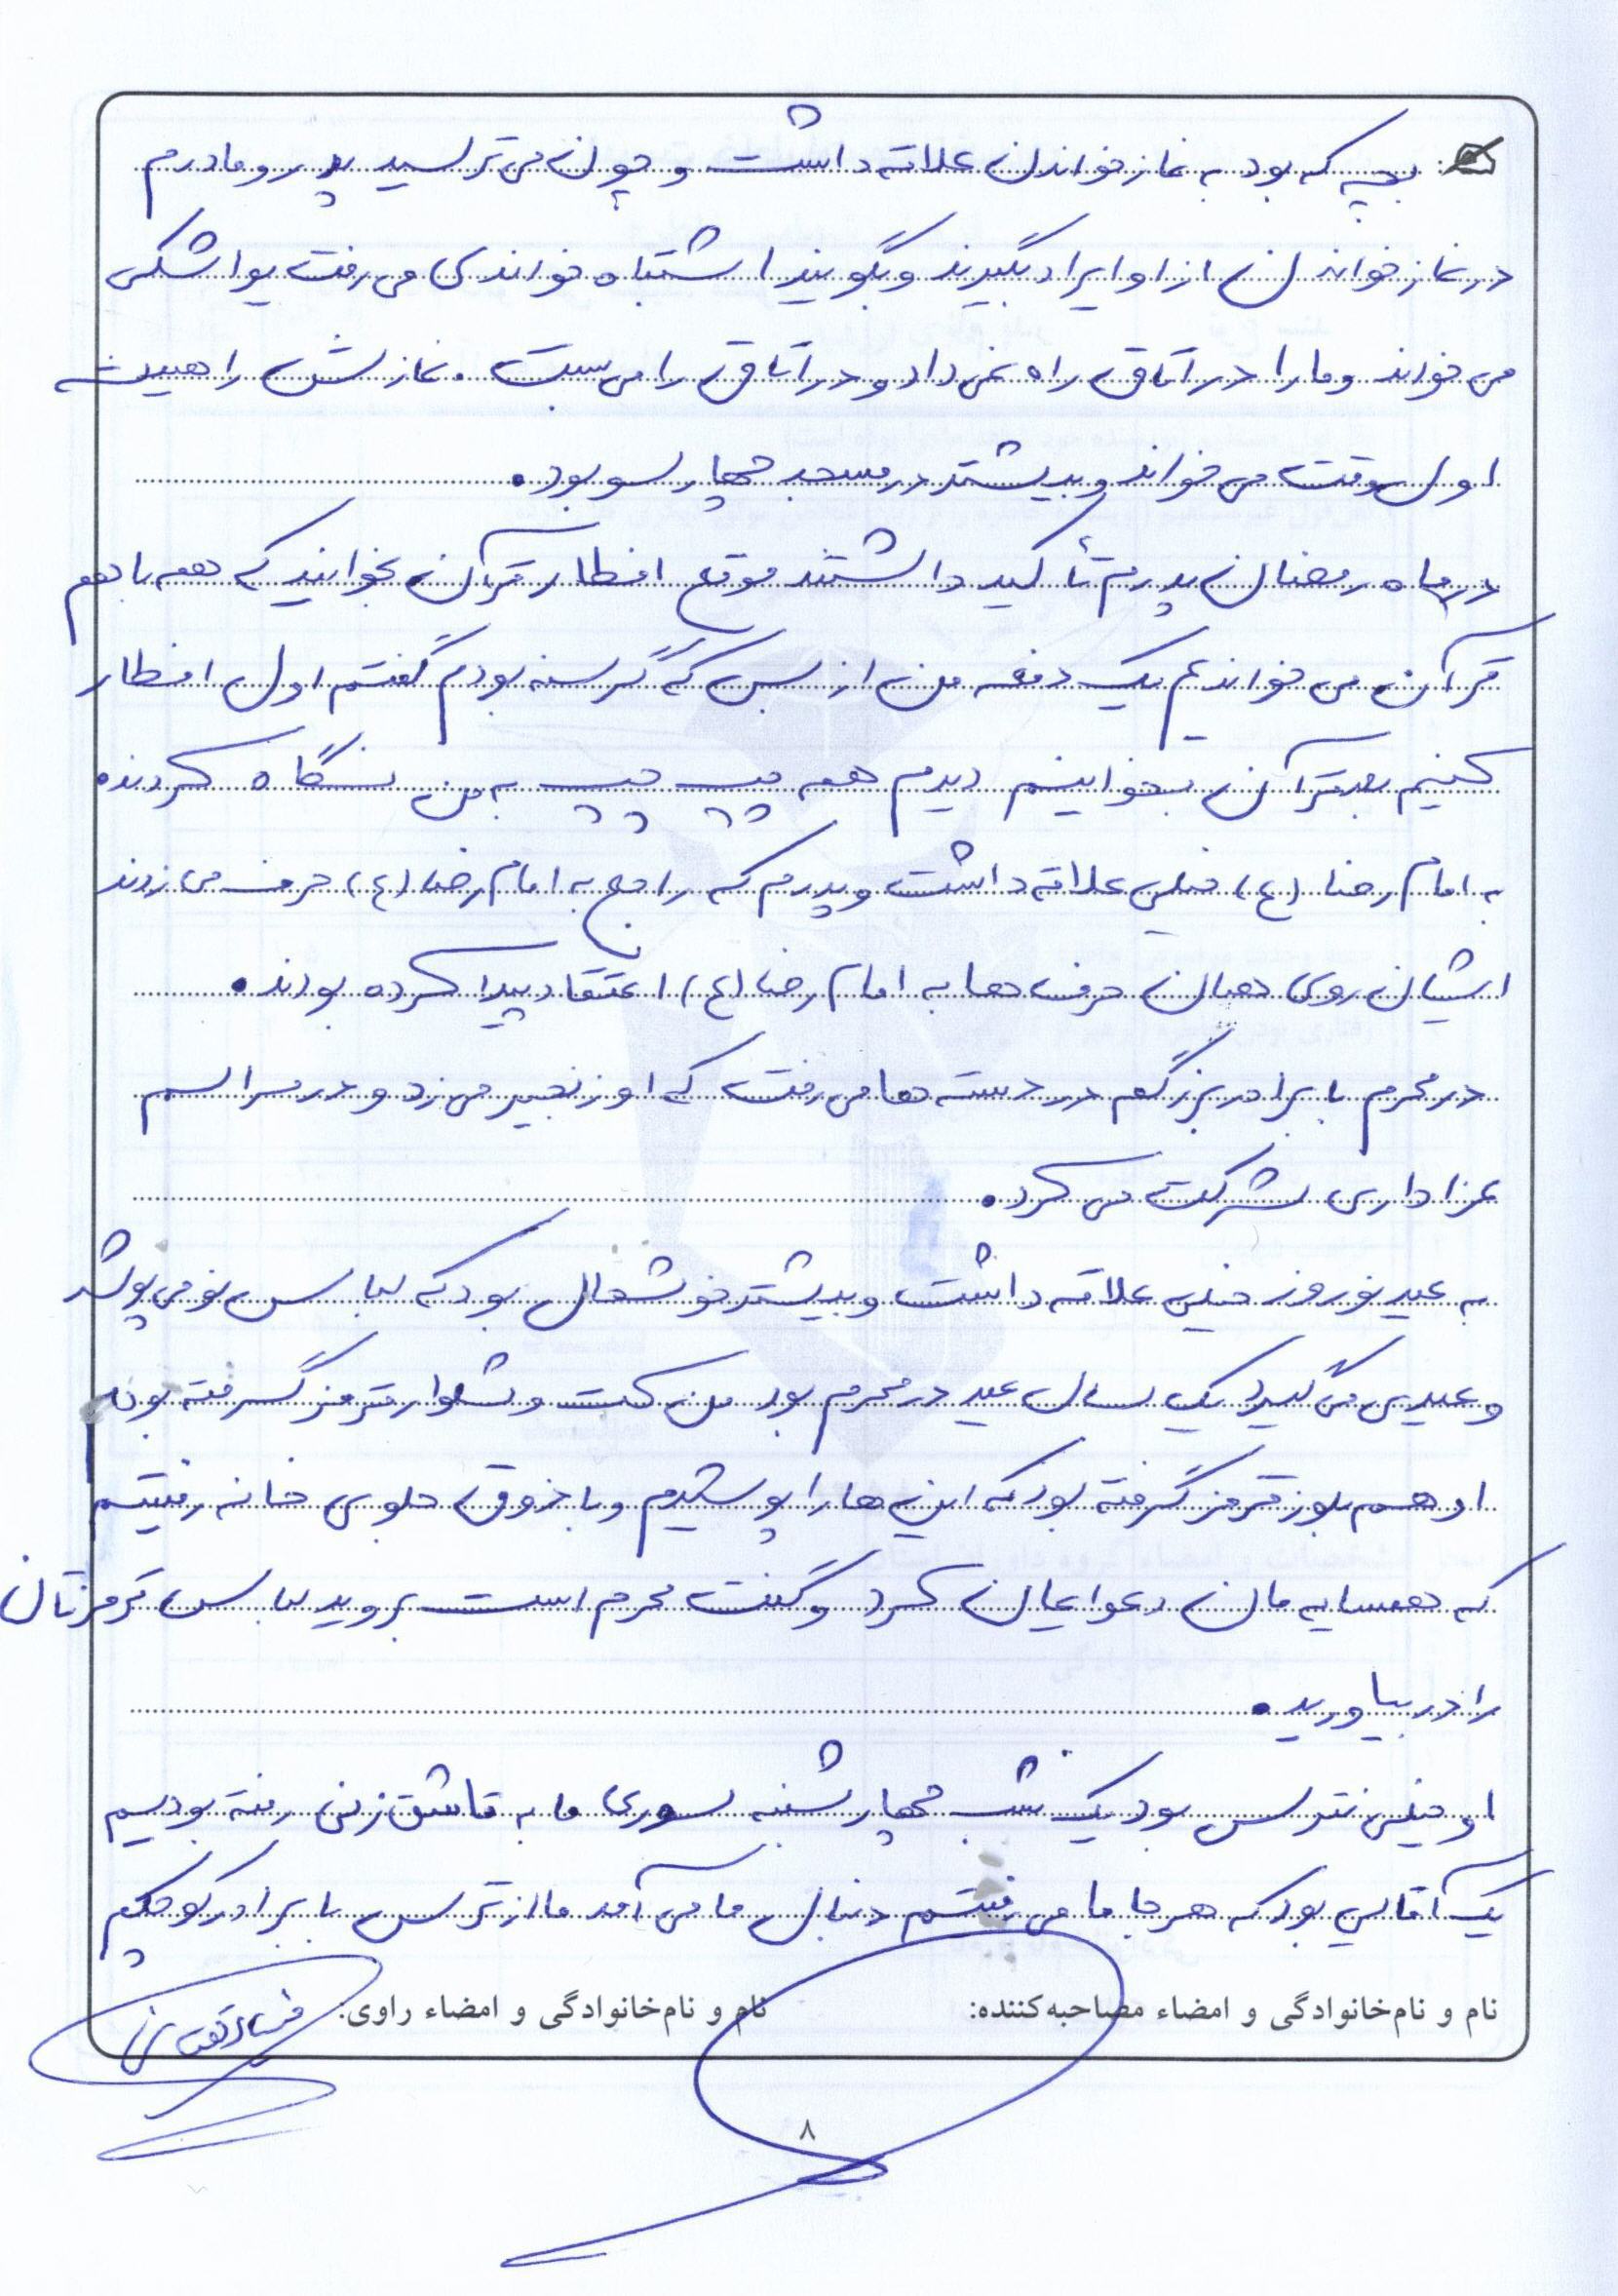 بچه که بود به نماز خواندن علاقه داشت و چون می ترسید پدر و مادرم
در نماز خواندن از او ایراد بگیرند و بگویند اشتباه خواندی می رفت یواشکی
می خواند و ما را در اتاق راه نمی داد و در اتاق را می بست. نمازش را همیشه
اول وقت می خواند و بیشتر در مسجد چهارسو بود.
در ماه رمضان پدرم تأکید داشتند موقع افطار قرآن بخوانید که همه با هم
قرآن می خواندیم یک دفعه من از بس که گرسنه بودم گفتم اول افطار
کنیم بعد قرآن بخوانیم دیدم همه چپ چپ به من نگاه کردند.
به امام رضا (ع) خیلی علاقه داشت و پدرم که راجع به امام رضا (ع) حرف می زدند
ایشان روی همان حرف ها به امام رضا (ع) اعتقاد پیدا کرده بودند.
در محرم با برادر بزرگم در دسته ها می رفت که او زنجیر می زد و در مراسم
عزاداری شرکت می کرد.
به عید نوروز خیلی علاقه داشت و بیشتر خوشحال بود که لباس نو می پوشد
و عیدی می گیرد یک سال عید در محرم بود من کت و شلوار قرمز گرفته بودم
او هم بلوز قرمز گرفته بود که این ها را پوشیدم و با ذوق جلوی خانه رفتیم
که همسایه مان دعوایمان کرد و گفت محرم است بروید لباس قرمزتان
را در بیاورید.
او خیلی نترس بود یک شب چهارشنبه سوری ما به قاشق زنی رفته بودیم
یک آقایی بود که هر جا ما می رفتیم دنبال ما می آمد ما از ترس با برادر کوچکم
نام و نام‌خانوادگی و امضاء مصاحبه‌کننده: نام و نام‌خانوادگی و امضاء راوی:
۸